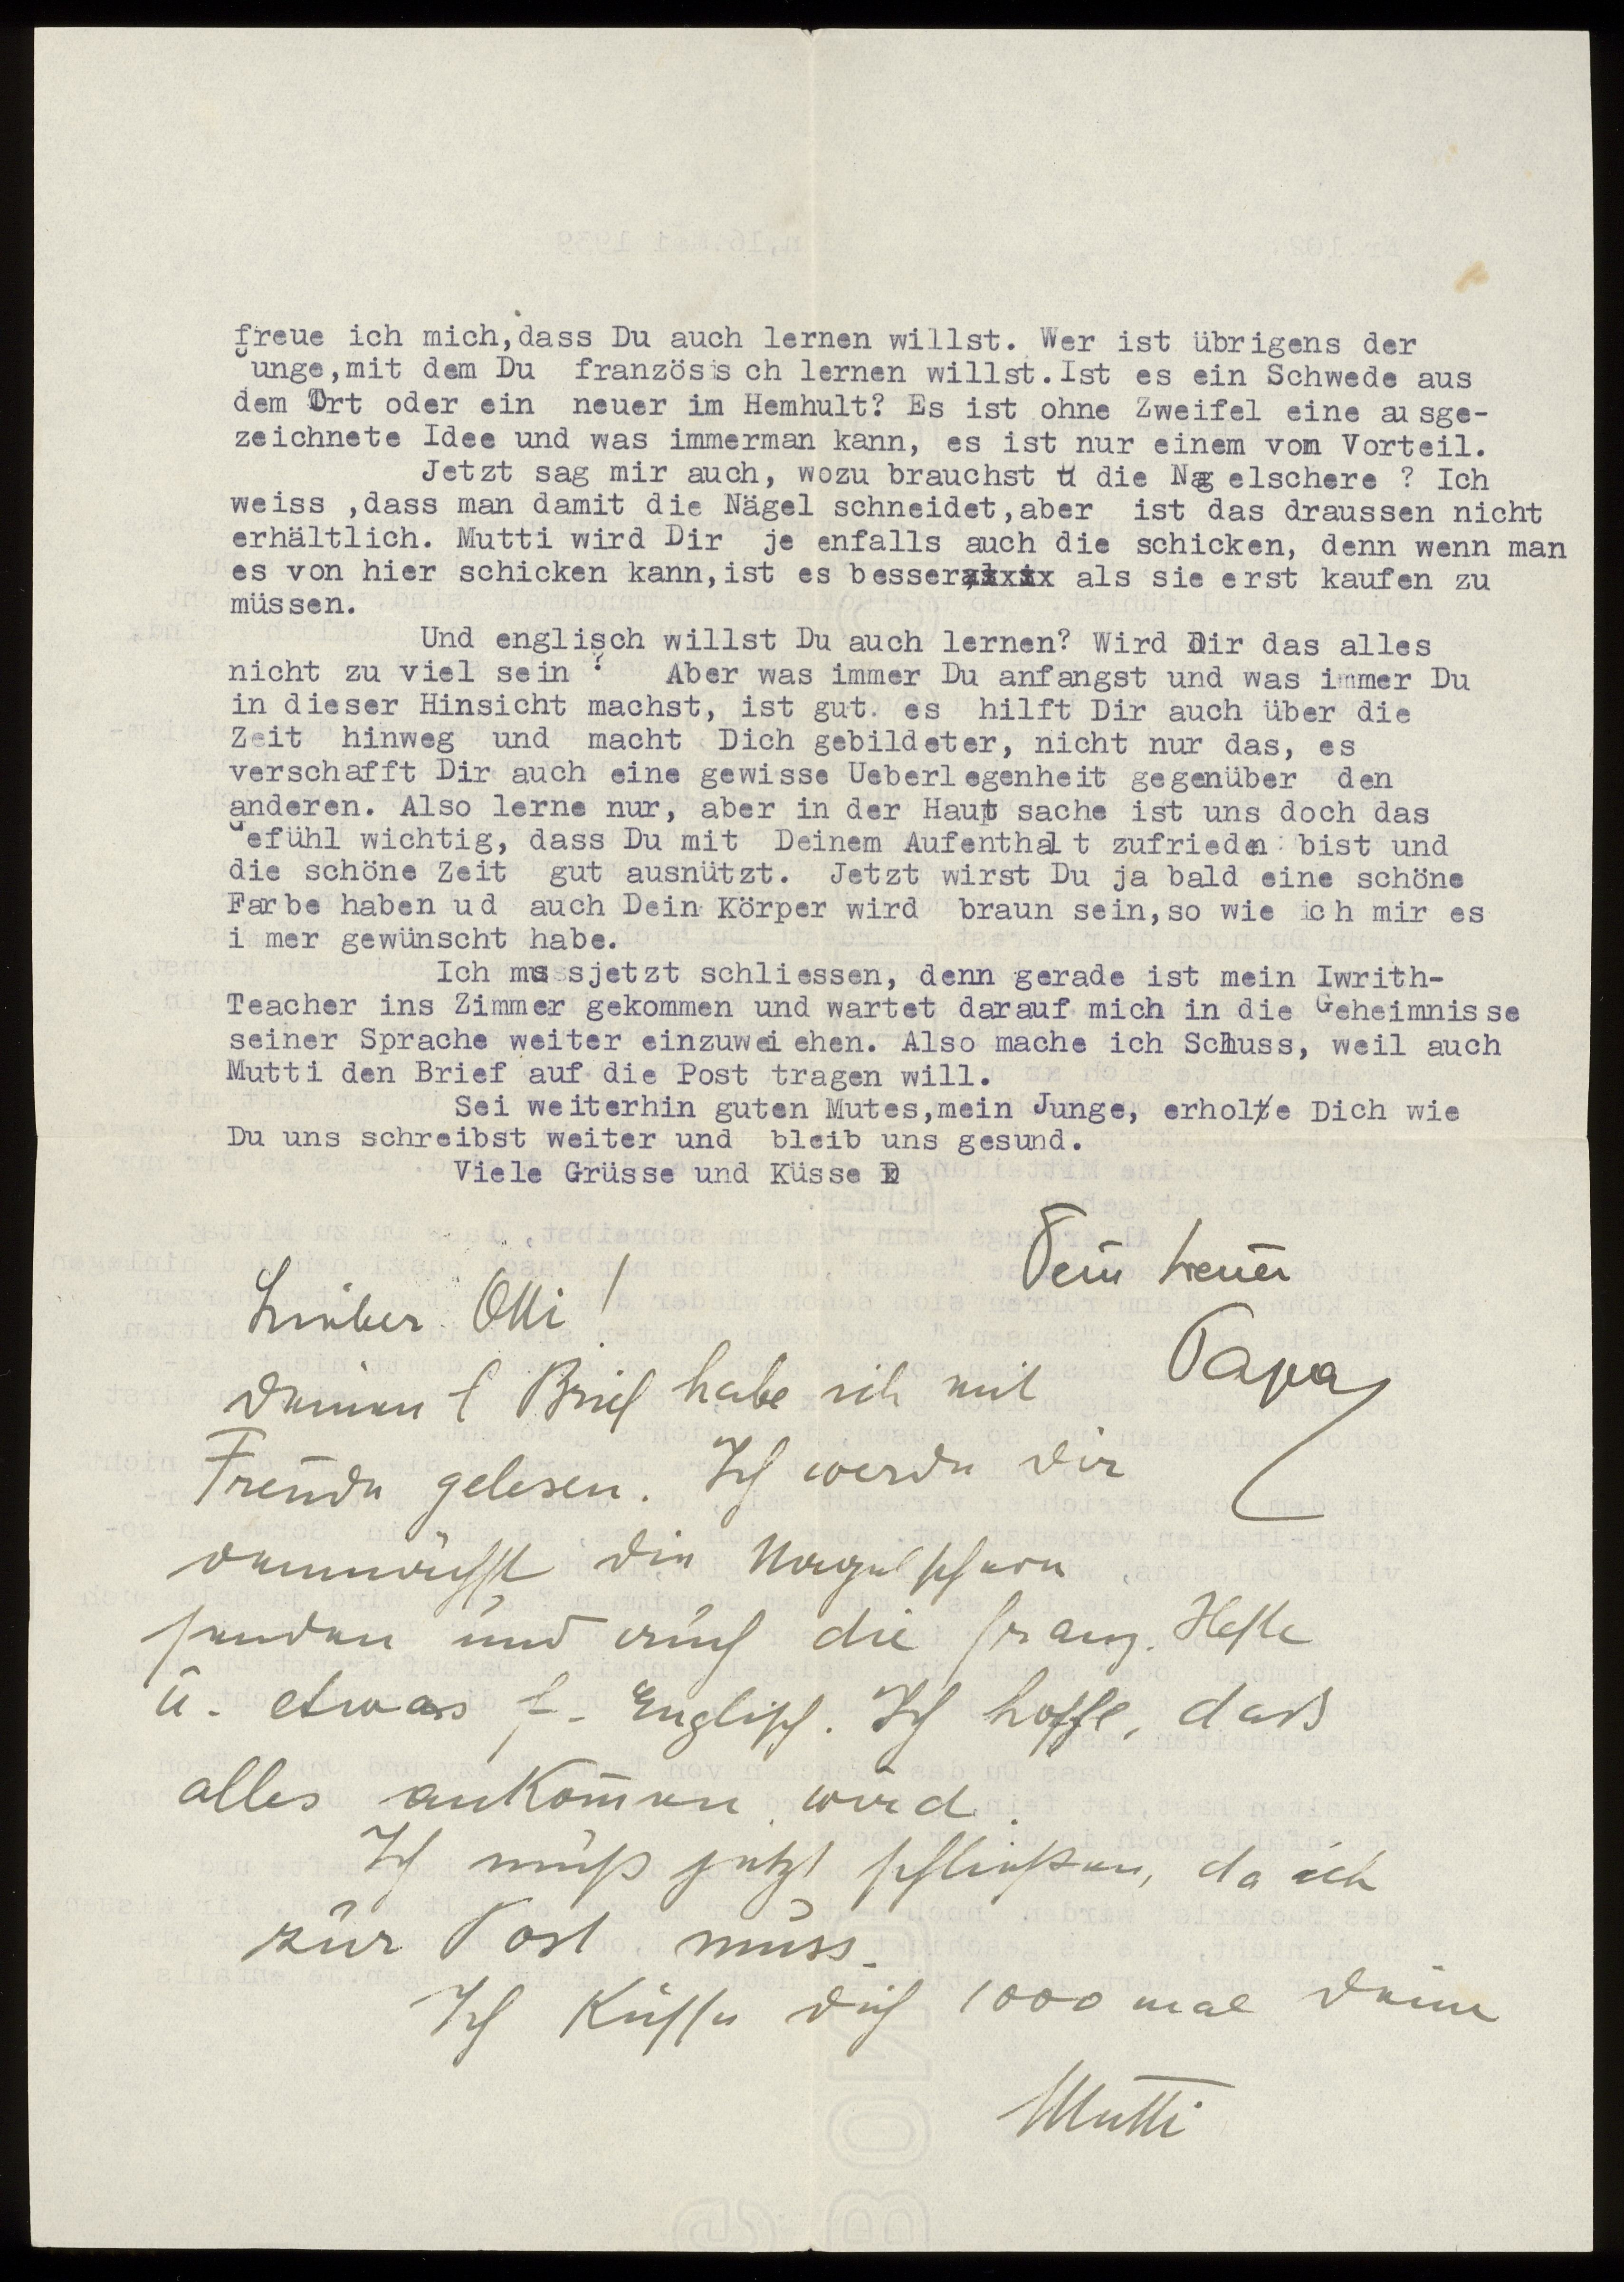 freue ich mich,dass Du auch lernen willst. Wer ist übrigens der
Junge,mit dem Du französisch lernen willst.Ist es ein Schwede aus
dem Ort oder ein neuer im Hemhult? Es ist ohne Zweifel eine ausge-
zeichnete Idee und was immerman kann, es ist nur einem vom Vorteil.
Jetzt sag mir auch, wozu brauchst u die Nagelschere ? Ich
weiss ,dass man damit die Nägel schneidet,aber ist das draussen nicht
erhältlich. Mutti wird Dir je enfalls auch die schicken, denn wenn man
es von hier schicken kann,ist es besser als sie erst kaufen zu
müssen.
Und englisch willst Du auch lernen? Wird Dir das alles
nicht zu viel sein ? Aber was immer Du anfangst und was immer Du
in dieser Hinsicht machst, ist gut. es hilft Dir auch über die
Zeit hinweg und macht Dich gebildeter, nicht nur das, es
verschafft Dir auch eine gewisse Ueberlegenheit gegenüber den
anderen. Also lerne nur, aber in der Haupt sache ist uns doch das
Gefühl wichtig, dass Du mit Deinem Aufenthalt zufrieden bist und
die schöne Zeit gut ausnützt. Jetzt wirst Du ja bald eine schöne
Farbe haben ud auch Dein Körper wird braun sein,so wie ich mir es
i mer gewünscht habe.
Ich muss jetzt schliessen, denn gerade ist mein Iwrith-
Teacher ins Zimmer gekommen und wartet darauf mich in die Geheimnisse
seiner Sprache weiter einzuweiehen. Also mache ich Schluss, weil auch
Mutti den Brief auf die Post tragen will.
Sei weiterhin guten Mutes,mein Junge, erhole Dich wie
Du uns schreibst weiter und bleib uns gesund.
Viele Grüsse und Küsse D
Dein treuer
Papa
Lieber Otti!
Deinen l Brief habe ich mit
Freude gelesen. Ich werde Dir
demnächst die Nagelschere
senden und auch die franz. Hefte
u. etwas f. Englisch. Ich hoffe, daß
alles ankom̅en wird.
Ich muß jetzt schließen, da ich
zur Post muss.
Ich küsse dich 1000 mal Deine
Mutti